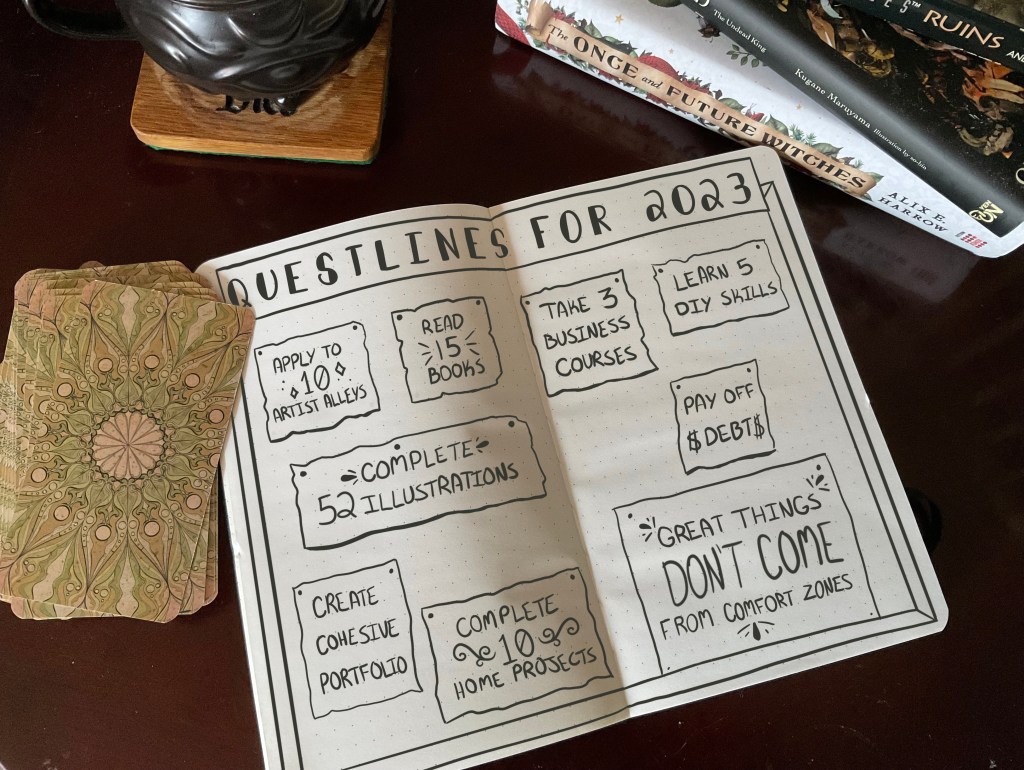 The Undead King
The ONCE and FUTURE WITCHES
Kugane Maruyama
Illustration by so-bin
ALIX E. HARROW
RUINS AND
QUESTLINES FOR 2023
APPLY TO
10
ARTIST ALLEYS
READ
15
BOOKS
TAKE 3
BUSINESS
COURSES
LEARN 5
DIY SKILLS
COMPLETE
52 ILLUSTRATIONS
PAY OFF
$DEBT$
CREATE
COHESIVE
PORTFOLIO
COMPLETE
10
HOME PROJECTS
GREAT THINGS
DON'T COME
FROM COMFORT ZONES